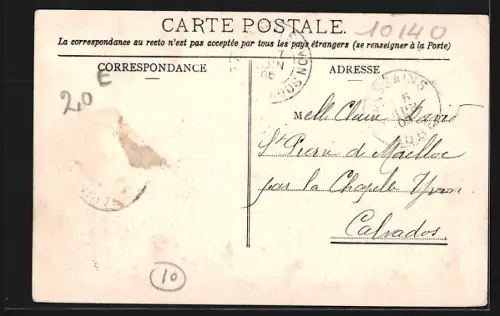 CARTE POSTALE.
10140
La correspondance au recto n'est pas acceptée par tous les pays étrangers (se renseigner à la Poste)
CORRESPONDANCE
ADRESSE
2,0 E
Melle Claire David
St Pierre de Mailloc
par la Chapelle Yvon
Calvados
10